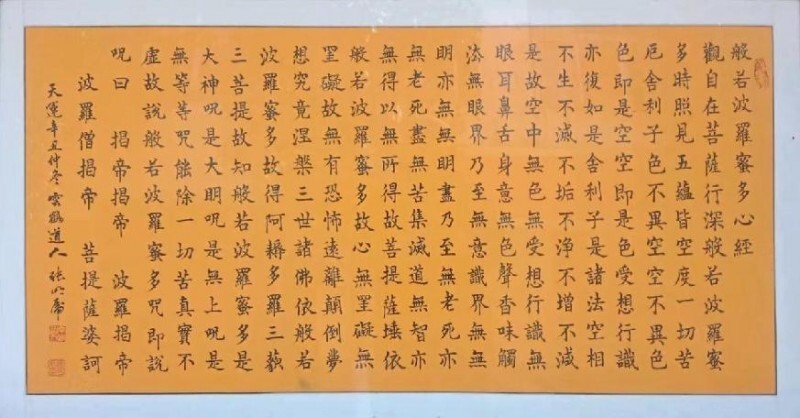 般若波羅蜜多心經
觀自在菩薩行深般若波羅蜜
多時照見五蘊皆空度一切苦
厄舍利子色不異空空不異色
色即是空空即是色受想行識
亦復如是舍利子是諸法空相
不生不滅不垢不淨不增不減
是故空中無色無受想行識無
眼耳鼻舌身意無色聲香味觸
法無眼界乃至無意識界無無
明亦無無明盡乃至無老死亦
無老死盡無苦集滅道無智亦
無得以無所得故菩提薩埵依
般若波羅蜜多故心無罣礙無
罣礙故無有恐怖遠離顛倒夢
想究竟涅槃三世諸佛依般若
波羅蜜多故得阿耨多羅三藐
三菩提故知般若波羅蜜多是
大神呪是大明呪是無上呪是
無等等呪能除一切苦真實不
虛故說般若波羅蜜多呪即說
呪曰 揭帝揭帝 波羅揭帝
波羅僧揭帝 菩提薩婆訶
天運辛丑仲冬 雲鶴道人張